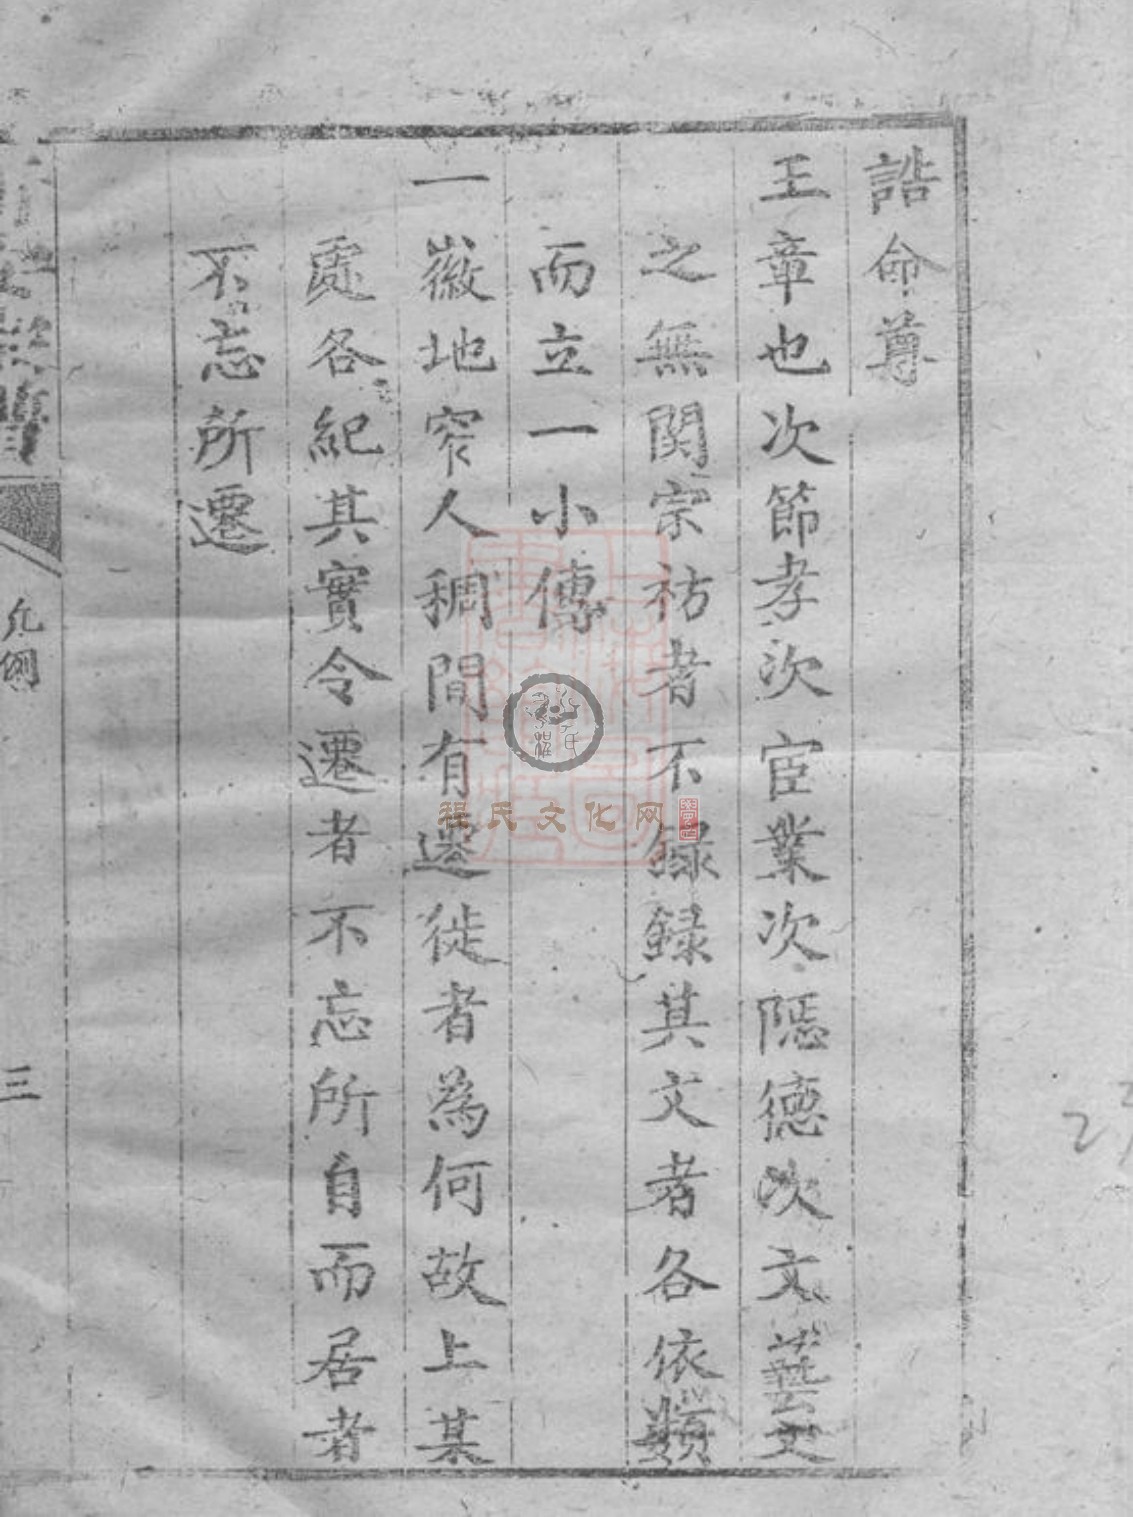 誥命尊
王章也次節孝次宦業次隠德次文藝文
之無関宗祊者不録録其文者各依類
而立一小傳
一徽地窄人稠間有遷徙者為何故上某
處各紀其實令遷者不忘所自而居者
不忘所遷
凡例
三
程氏文化网